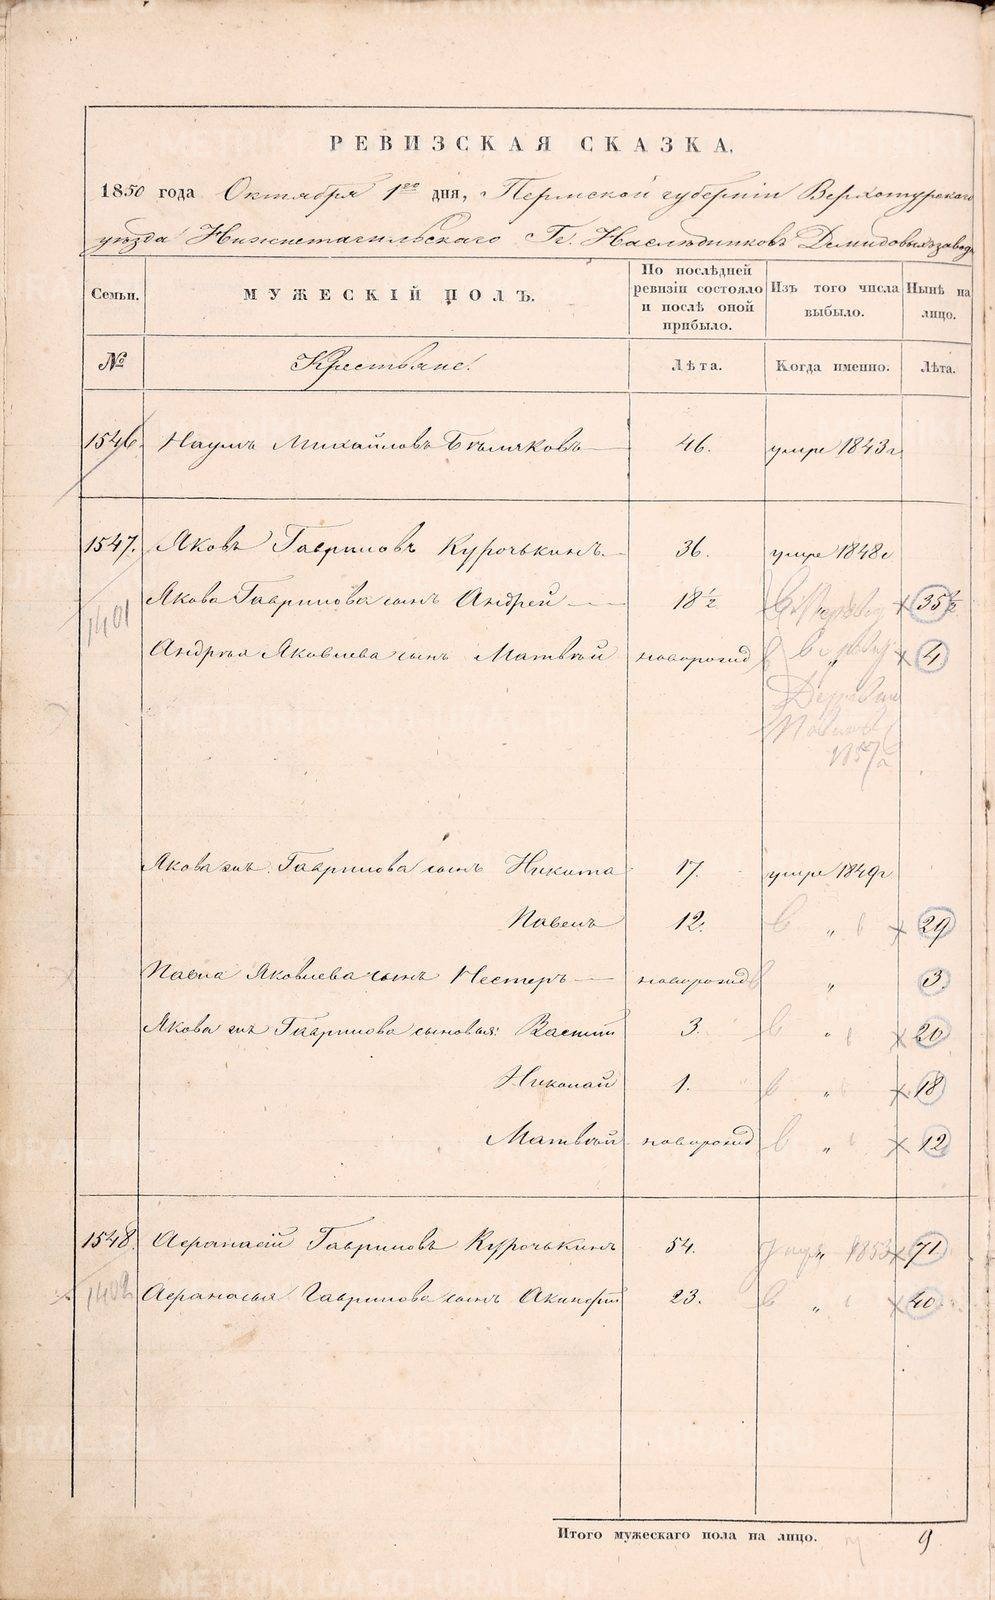 РЕВИЗСКАЯ СКАЗКА.
1850 года Октября 1го дня, Пермской губерніи Верхотурскаго
уѣзда Нижнетагильскаго Гг. Наслѣдниковъ Демидовыхъ завода
Семьи. МУЖЕСКІЙ ПОЛЪ. По послѣдней ревизіи состояло и послѣ оной прибыло. Изъ того числа выбыло. Нынѣ на лицо.
№ Крестьяне. Лѣта. Когда именно. Лѣта.
1546. Наумъ Михайловъ Бѣляковъ 46. умре 1843 г
1547. Яковъ Гавриловъ Курочькинъ. 36. умре 1848 г
1401 Якова Гаврилова сынъ Андрей 18 1/2 35 1/2
Андрѣя Яковлева сынъ Матвѣй новорожд „ 4
1857 г
Якова же Гаврилова сынъ Никита 17. умре 1849 г
Павелъ 12. „ 29
Павла Яковлева сынъ Нестеръ новорожд „ 3.
Якова же Гаврилова сыновья: Василій 3. „ 20
Николай 1. „ 18
Матвѣй новорожд „ 12
1548. Афанасій Гавриловъ Курочькинъ 54. умре 1853 71
1402 Афанасья Гаврилова сынъ Акинфій 23. „ 40
Итого мужескаго пола на лицо. 9
METRIKI.GASO-URAL.RU